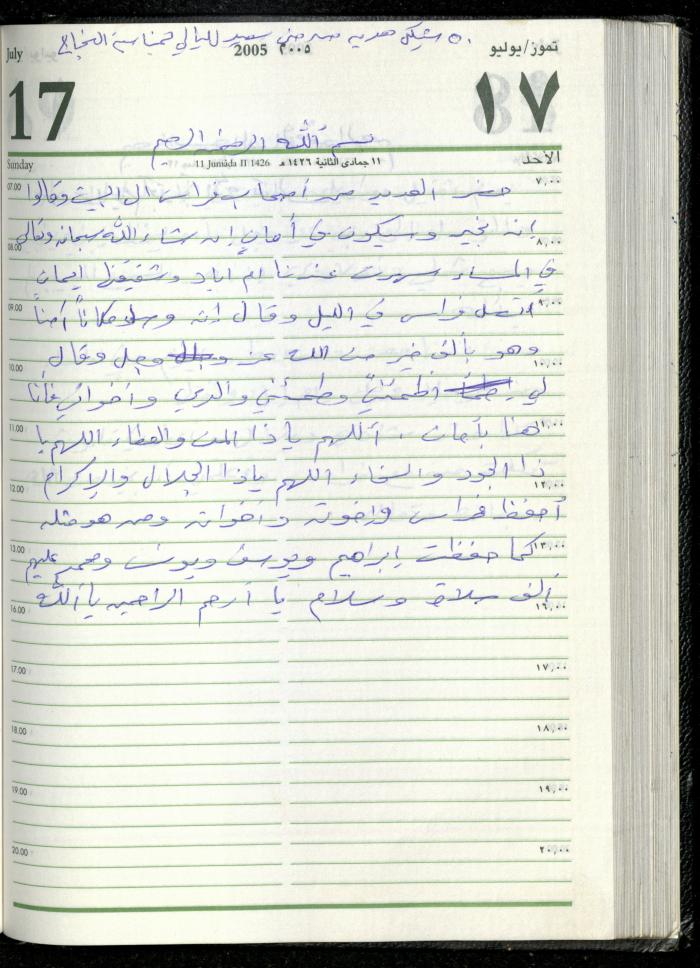 ٥٠ شيكل هدية من منى سعيد لليالي بمناسبة النجاح
July 2005 ٢٠٠٥ تموز/يوليو
17 ١٧
بسم الله الرحمن الرحيم
Sunday 11 Jumada II 1426 ١١ جمادى الثانية ١٤٢٦ هـ الأحد
07.00 حضر العديد من أصحاب فراس الى البيت وقالوا ٧,٠٠
إنه بخير وسيكون في أمان إن شاء الله سبحانه وتعالى
08.00 ٨,٠٠
في المساء سهرت عندنا ام اياد وشقيقتها إيمان
09.00 أتصل فراس في الليل وقال إنه وصل مكاناً أمناً ٩,٠٠
وهو بألف خير من الله عز وجل وقال
10.00 ١٠,٠٠
لي أطمئني وطمئني والدي وأخواتي فأنا
11.00 هنا بأمان . أللهم يا ذا المن والعطاء اللهم يا ١١,٠٠
ذا الجود والسخاء اللهم ياذا الجلال والإكرام
12.00 ١٢,٠٠
أحفظ فراس وإخوته وأخواته ومن هو مثله
13.00 كما حفظت إبراهيم ويوسف ويونس ومحمد عليهم ١٣,٠٠
ألف صلاة وسلام يا أرحم الراحمين يا ألله
16.00 ١٦,٠٠
17.00 ١٧,٠٠
18.00 ١٨,٠٠
19.00 ١٩,٠٠
20.00 ٢٠,٠٠